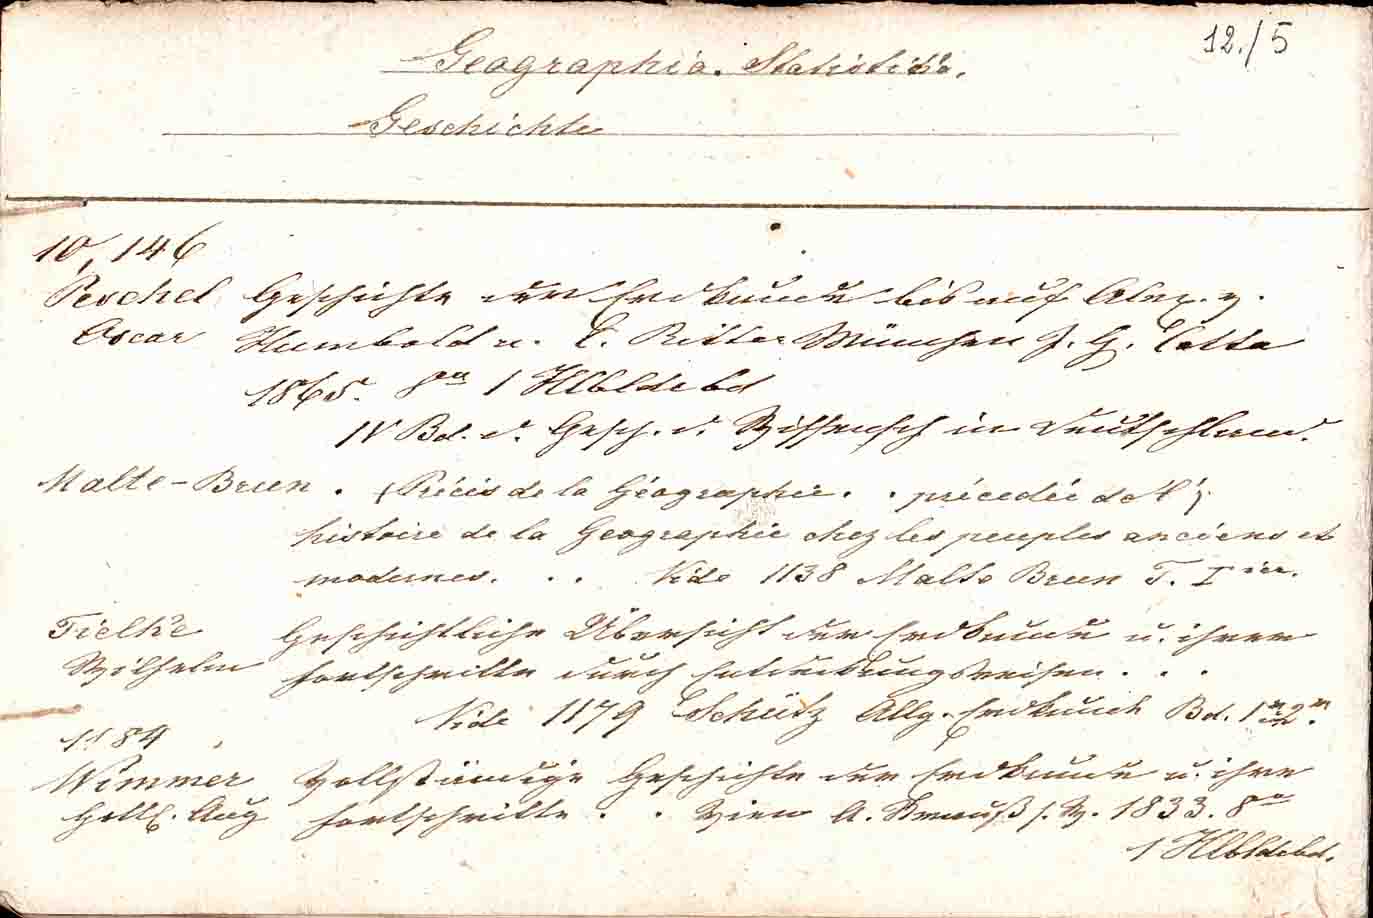 12./5
Geographia. Statistik.
Geschichte
10,146
Peschel Geschichte der Erdkunde bis auf Alex. v.
Oscar Humbold u. C. Ritter München J. G. Cotta
1865. 8vo 1 Hlbldrbd
IV Bd. d. Gesch. d. Wissensch in Deutschland.
Malte-Brun. Précis de la Géographie. . précedée de l'
histoire de la Geographie chez les peuples anciens et
modernes. . . Vide 1138 Malte Brun T. Iier.
Tielke Geschichtliche Übersicht der Erdkunde u. ihrer
Wilhelm Fortschritte durch Entdeckungsreisen. . .
Vide 1179 Schütz Allg. Erdkunde Bd. 1 2
1184
Wimmer Vollständige Geschichte der Erdkunde u. ihre
Gottl. Aug Fortschritte . . Wien A. Strauß s. W. 1833. 8o
1 Hlbldrbd.